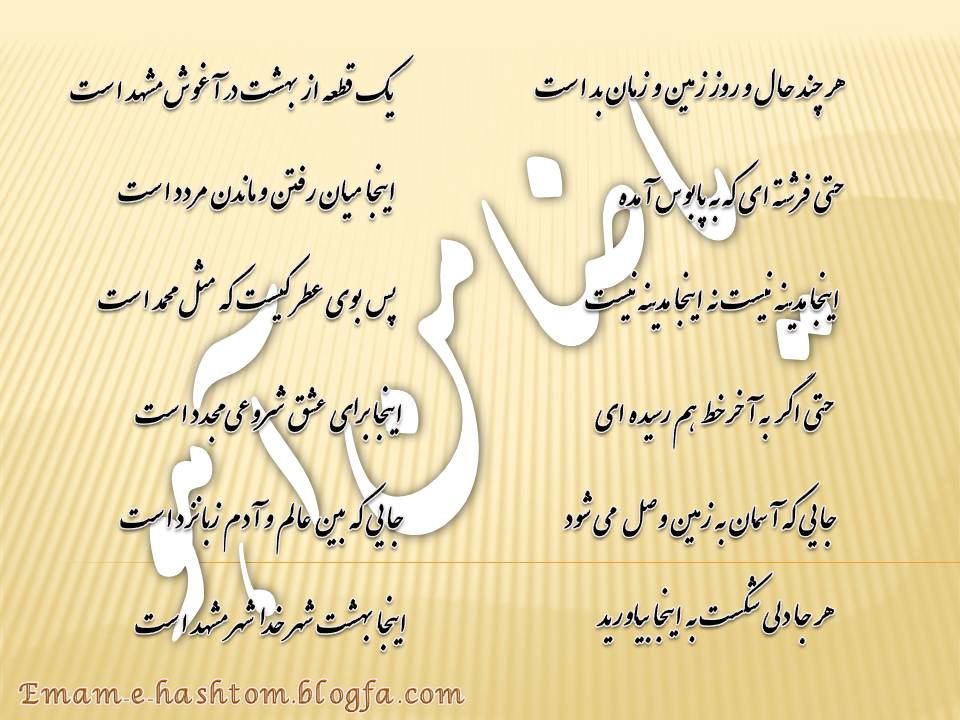 هر چند حال و روز زمین و زمان بد است یک قطعه از بهشت در آغوش مشهد است
حتی فرشته ای که به پابوس آمده اینجا میان رفتن و ماندن مردد است
اینجا مدینه نیست نه اینجا مدینه نیست پس بوی عطر کیست که مثل محمد است
حتی اگر به آخر خط هم رسیده ای اینجا برای عشق شروعی مجدد است
جایی که آسمان به زمین وصل می شود جایی که بین عالم و آدم زبانزد است
هر جا دلی شکست به اینجا بیاورید اینجا بهشت شهر خدا شهر مشهد است
یا ضامن آهو
Emam-e-hashtom.blogfa.com